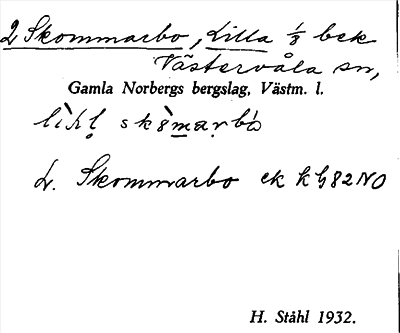 2 Skommarbo, Lilla 1/8 bek
Västervåla sn,
Gamla Norbergs bergslag, Västm. l.
L. Skommarbo ek k G82NO
H. Ståhl 1932.